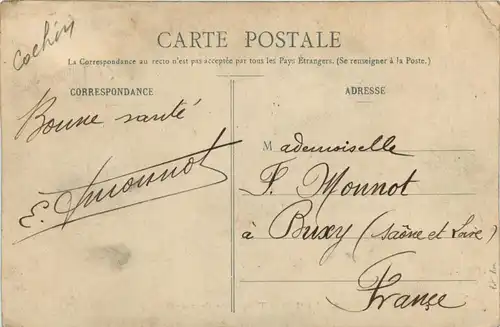 Cochin
CARTE POSTALE
La Correspondance au recto n'est pas acceptée par tous les Pays Étrangers. (Se renseigner à la Poste.)
CORRESPONDANCE
Bonne santé
E. Monnot
ADRESSE
Mademoiselle
F. Monnot
à Buxy (Saône et Loire)
France